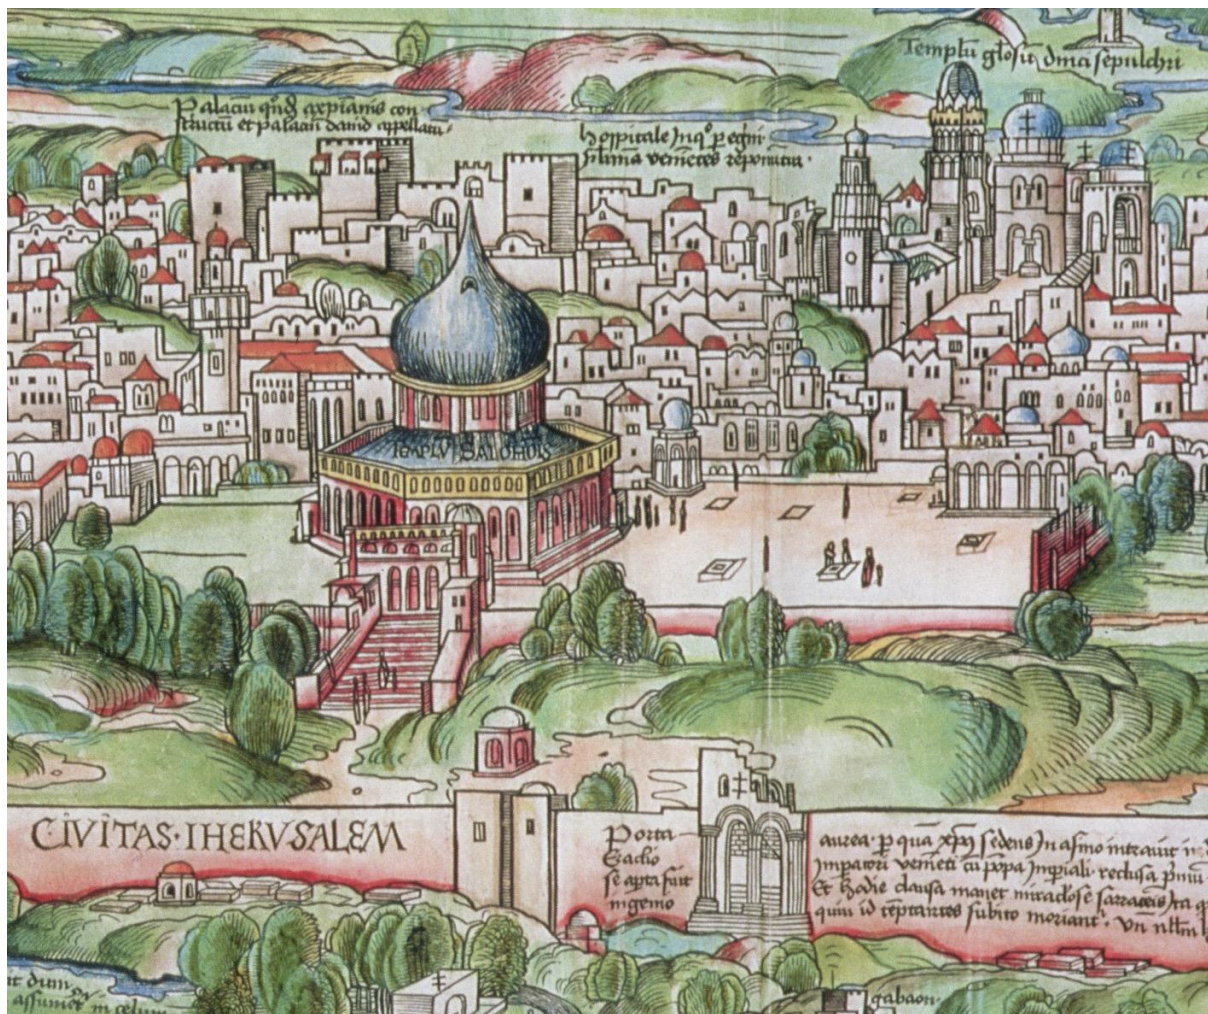 Templu głosu dnici sepulchri
Palaciu qnd axpianis con
structu et palaciu david appellatu
hospitale
venietes reponutur
TEMPLV SALOMOIS
CIVITAS·IHERUSALEM
Porta
se apta fuit
ingenio
aurea· p qua xps sedens In asino intrauit in
Imperatori venieti cu popa Imperiali reclusa
Et hodie clausa manet miraclose sarracenis Ita
quiu id teptantes subito moriant·
it dum
assumet in celum
gabaon·